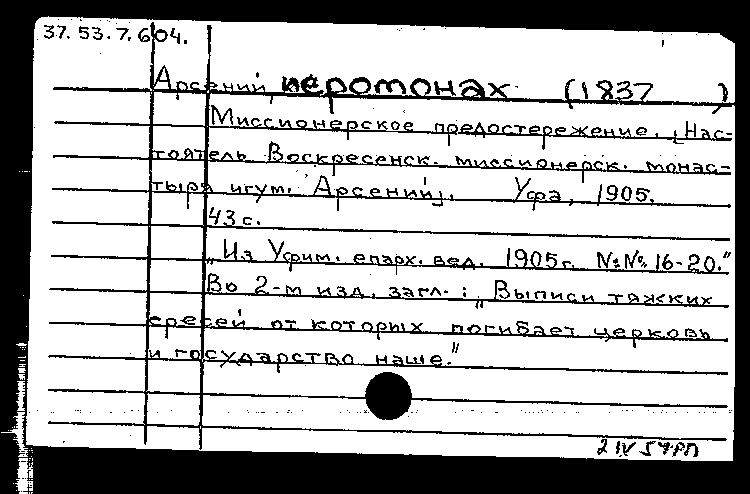 37.53.7.604.
Арсений, иеромонах (1837 )
Миссионерское предостережение. [Нас-
тоятель Воскресенск. миссионерск. монас-
тыря игум. Арсений]. Уфа, 1905.
43 с.
"Из Уфим. епарх. вед. 1905 г. №№ 16-20."
Во 2-м изд. загл.: "Выписи тяжких
ересей от которых погибает церковь
и государство наше."
2 IV 54